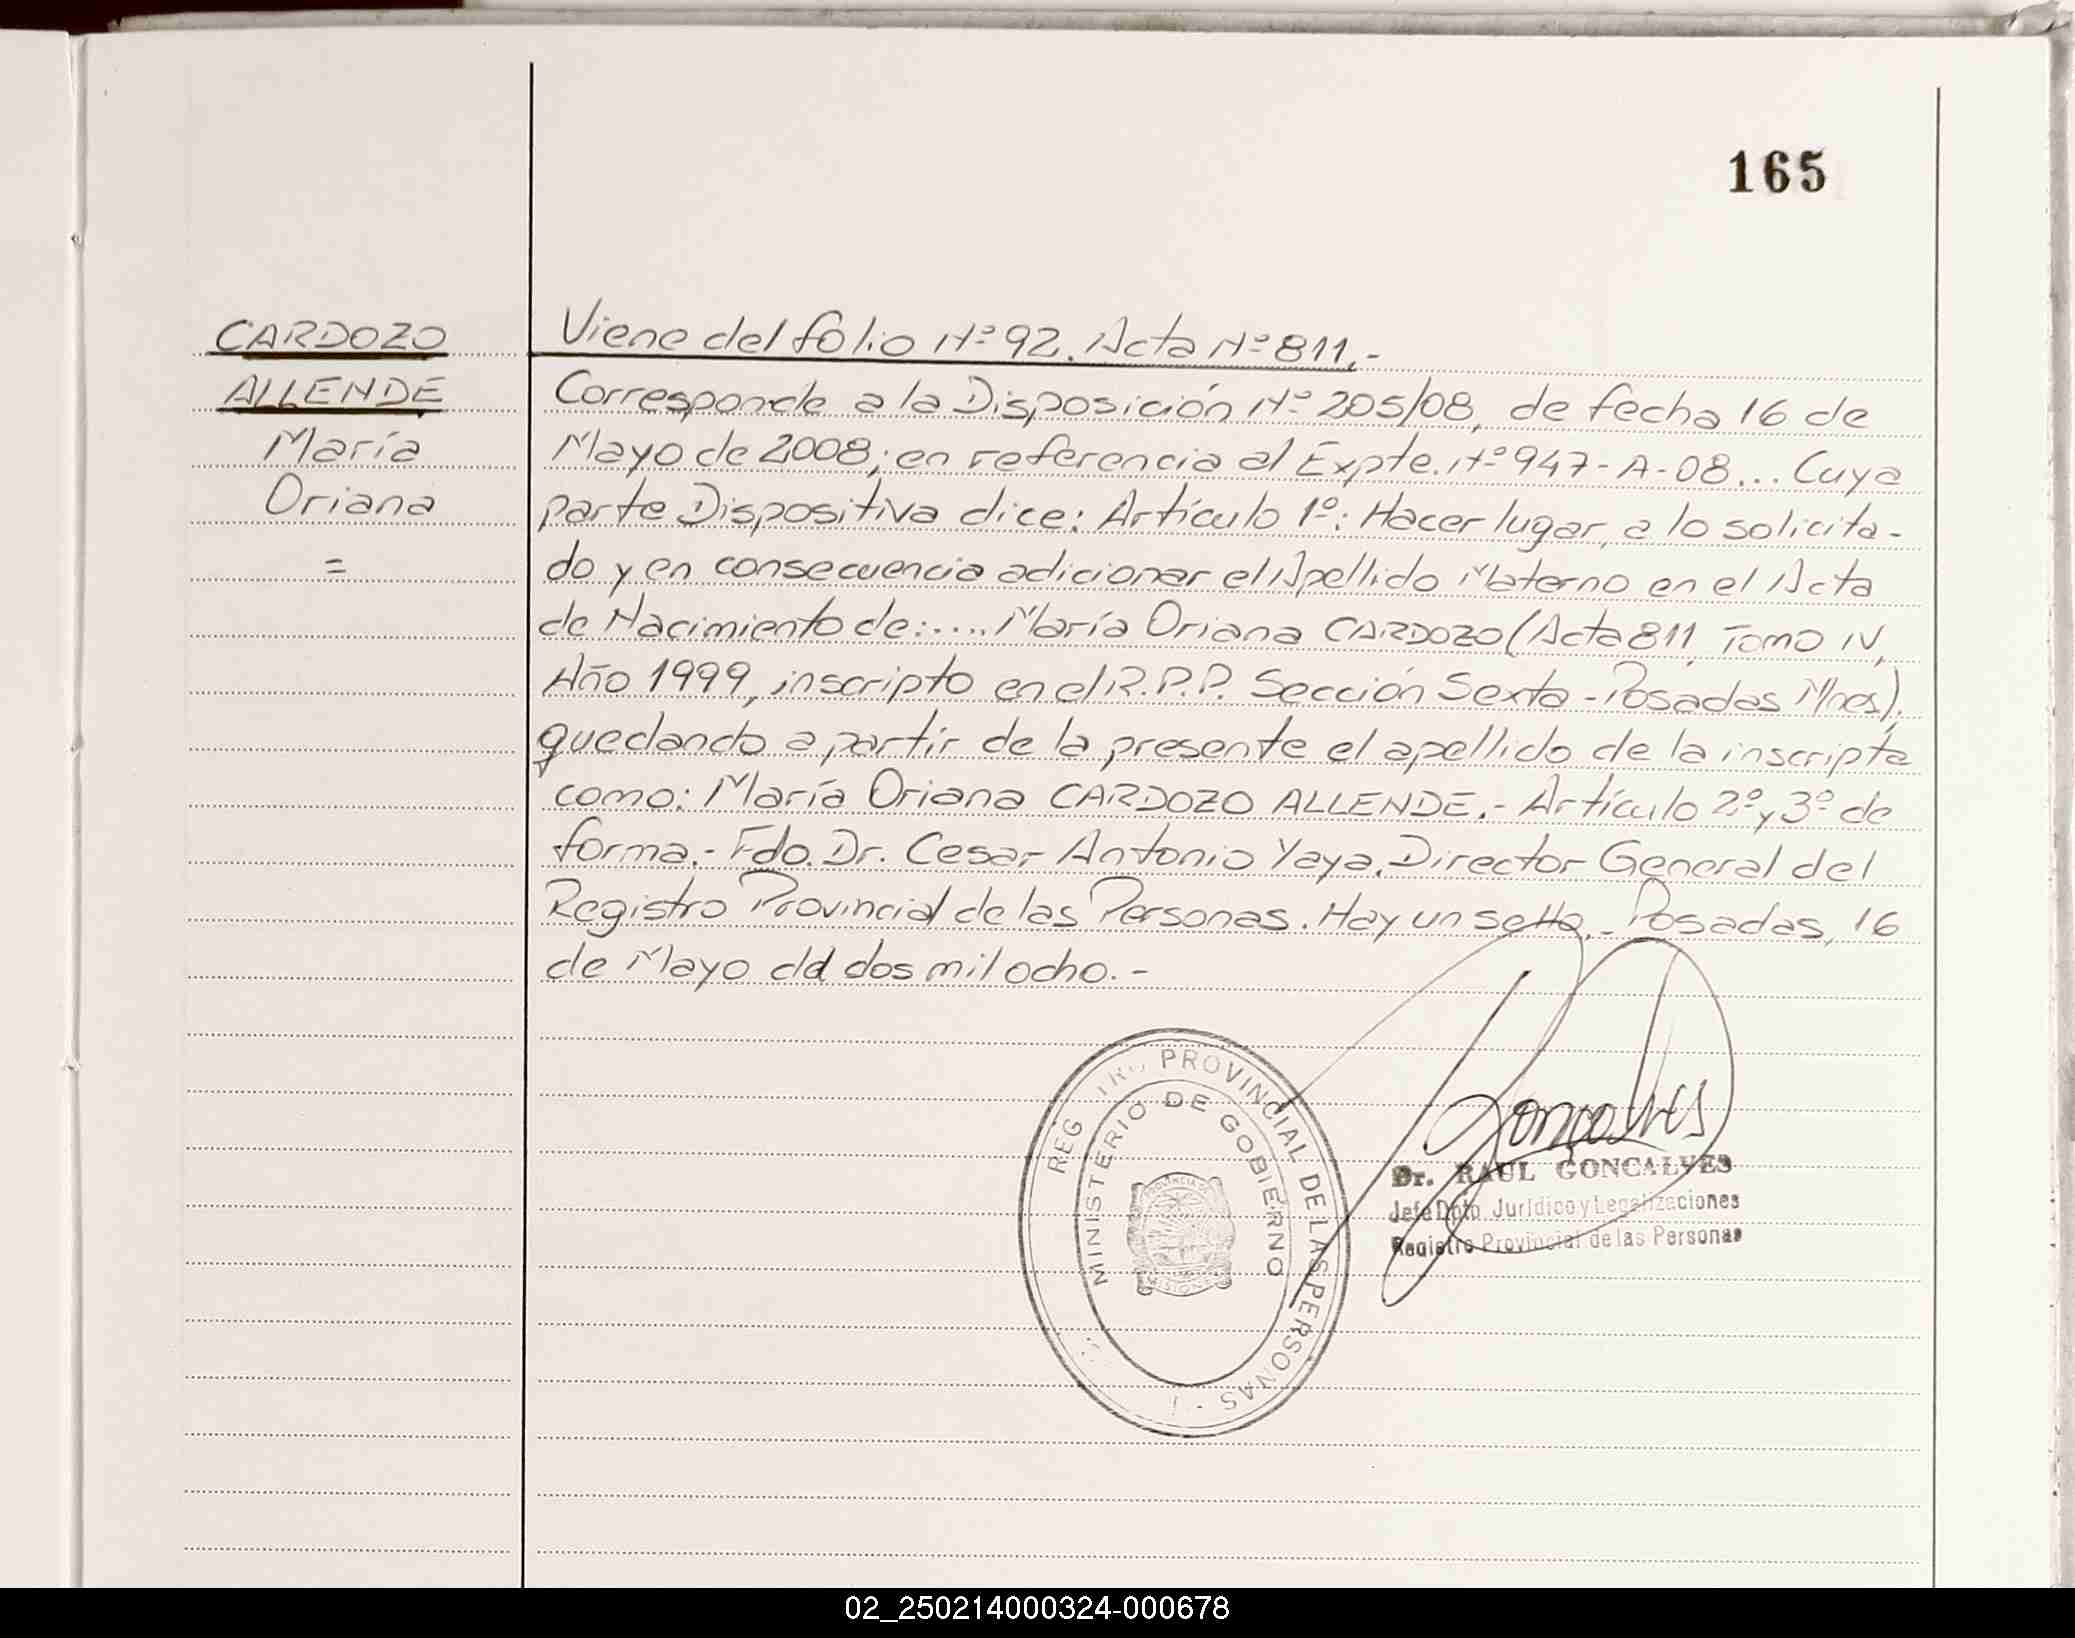 165
CARDOZO
ALLENDE
María
Oriana
=
Viene del folio Nº 92. Acta Nº 811.-
Corresponde a la Disposición Nº 205/08, de fecha 16 de
Mayo de 2008; en referencia al Expte. Nº 947-A-08... Cuya
parte Dispositiva dice: Artículo 1º: Hacer lugar, a lo solicita-
do y en consecuencia adicionar el Apellido Materno en el Acta
de Nacimiento de:.... María Oriana CARDOZO (Acta 811, Tomo IV,
Año 1999, inscripto en el R.P.P. Sección Sexta - Posadas Mnes),
quedando a partir de la presente el apellido de la inscripta
como: María Oriana CARDOZO ALLENDE.- Artículo 2º y 3º de
forma.- Fdo. Dr. Cesar Antonio Yaya. Director General del
Registro Provincial de las Personas. Hay un sello.- Posadas, 16
de Mayo del dos mil ocho.-
REG TRO PROVINCIAL DE LAS PERSONAS -
MINISTERIO DE GOBIERNO
PROVINCIA
MISIONES
Goncalves
Dr. RAUL GONCALVES
Jefe Dpto. Jurídico y Legalizaciones
Registro Provincial de las Personas
02_250214000324-000678